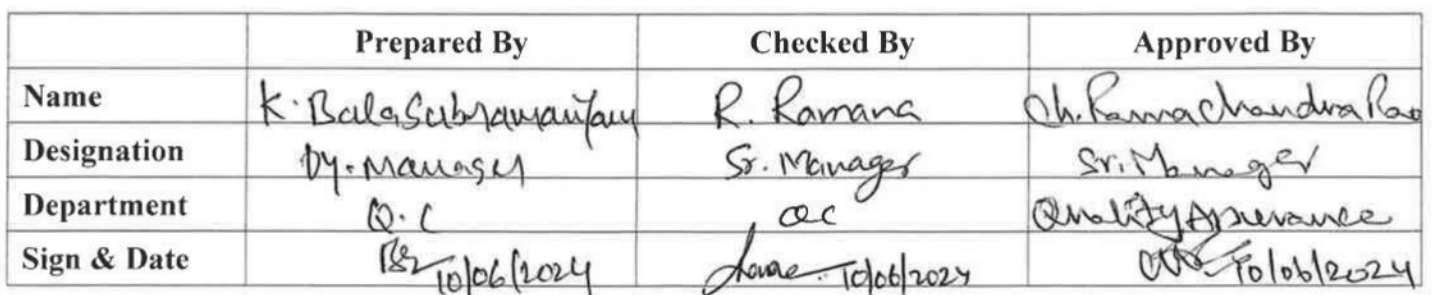 Prepared By Checked By Approved By
Name K. Balasubramanyam R. Ramana Ch. Rama Chandra Rao
Designation Dy. Manager Sr. Manager Sr. Manager
Department Q.C QC Quality Assurance
Sign & Date 10/06/2024 10/06/2024 10/06/2024